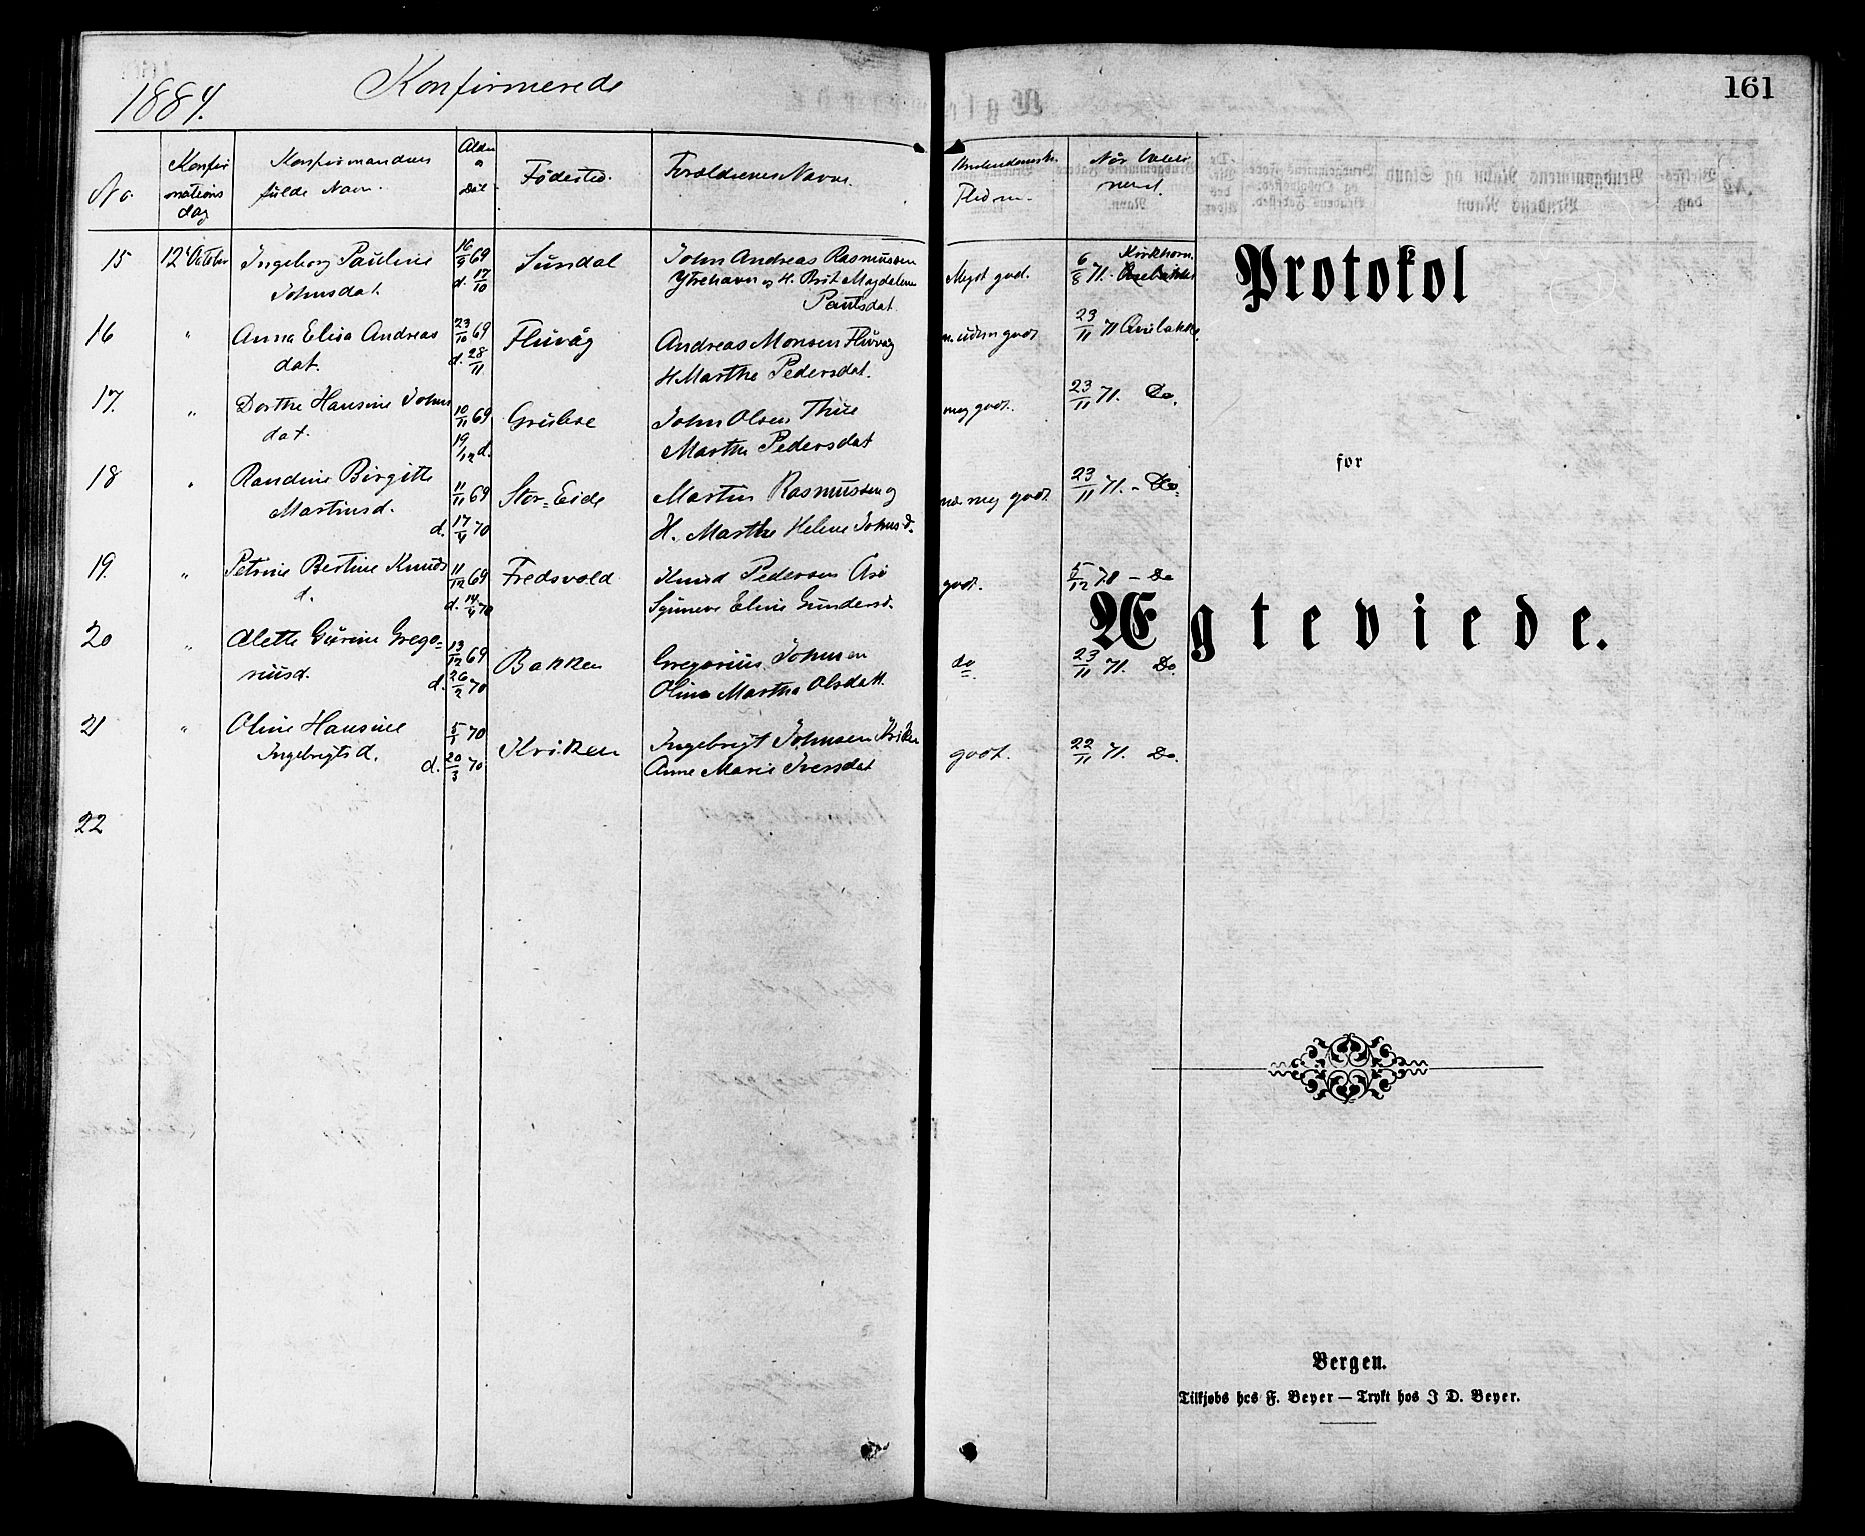 161
1884.
Konfirmerede
No.
Konfir
mations
dag
Konfirmandens
fulde Navn.
Alder
a
Født
Fødested.
Forældrenes Navn.
Flid m.
Når Vacci
neret.
15 12' Oktober Ingeborg Pauline 16/9 69 Sundal John Andreas Rasmussen Meget god. 6/8 71. Kirkhorn.
Johnsdat. d. 17/10 Ytrehavn og H. Brit Magdalene
Paulsdat.
16 " Anna Elisa Andreas 23/10 69 Fluvåg Andreas Monsen Fluvåg m. uden godt 23/11 71
dat. d. 28/11 H Marthe Pedersdat.
17. " Dorthe Hansine Johns 10/11 69 John Olsen Thue meg godt. 23/11 71. Do.
dat. 19/12 d. Marthe Pedersdat
18 " Randine Birgitte 11/11 69 Stor=Eide Martin Rasmussen og meg godt 23/11 71. - Do.
Martinsd. d. 17/4 70 H. Marthe Helene Johnsd.
19. " Petrine Bertine Knuds 11/12 69 Fredsvold Knud Pedersen godt. 5/12 70 - Do
d. d. 14/4 70 Synneve Eline Gundersd.
20 " Alette Gurine Grego= 13/12 69 Bakken Gregorius Johnsen do 23/11 71. Do.
riusd. d. 26/2 70 Olina Martha Olsdatt.
21 " Oline Hansine 5/1 70 Kriken Ingebrigt Johnsen Kriken godt. 22/11 71. Do.
Ingebrigtsd. d. 20/3 70 Anne Marie Iversdat
22
Protokol
for
Ægteviede.
Bergen.
Tilkjøbs hos F. Beyer — Trykt hos J D. Beyer.